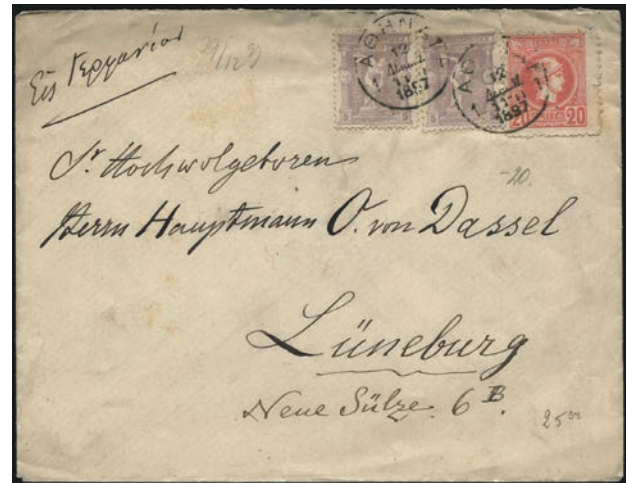 Εἰς Γερμανίαν
29/12 97
ΑΘΗΝΑΙ 1
12
ΔΕΚΕΜ.
1897
1 ΑΘΗΝΑΙ 1
12
ΔΕΚΕΜ.
1897
5
5
5
5
20 20
Sr. Hochwolgeboren
-20.
Herrn Hauptmann O. von Dassel
Lüneburg
Neue Sülze 6 B.
25